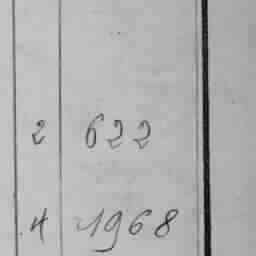 2 622
4 1968